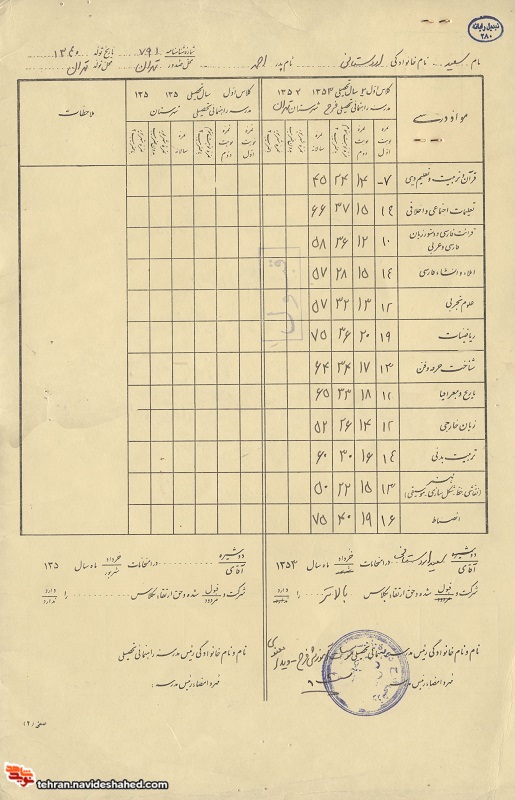 تبدیل رایانه
۲۸۰
نام سعید نام خانوادگی اردستانی نام پدر شماره شناسنامه ۷۹۱ محل صدور تهران تاریخ تولد ۱۳۴۰ محل تولد تهران
مواد درسی
کلاس اول سال تحصیلی ۱۳۵۳
مدرسه راهنمائی تحصیلی فرح شهرستان تهران
کلاس اول سال تحصیلی ۱۳۵ ۱۳۵
مدرسه راهنمائی تحصیلی شهرستان
ملاحظات
نمره نوبت اول
نمره نوبت دوم
نمره سالانه
قرآن و تربیت و تعلیم دینی ۷ ۱۴ ۲۴ ۴۵
تعلیمات اجتماعی و اخلاقی ۱۴ ۱۵ ۳۷ ۶۶
قرائت فارسی و دستور زبان فارسی و عربی ۱۰ ۱۲ ۳۶ ۵۸
املاء و انشاء فارسی ۱۴ ۱۵ ۲۸ ۵۷
علوم تجربی ۱۲ ۱۳ ۳۲ ۵۷
ریاضیات ۱۹ ۲۰ ۳۶ ۷۵
شناخت حرفه و فن ۱۳ ۱۷ ۳۴ ۶۴
تاریخ و جغرافیا ۱۲ ۱۸ ۳۳ ۶۵
زبان خارجی ۱۲ ۱۴ ۲۶ ۵۲
تربیت بدنی ۱۴ ۱۶ ۳۰ ۶۰
هنر
۱۳ ۱۵ ۲۲ ۵۰
انضباط ۱۶ ۱۹ ۴۰ ۷۵
قبول
دوشیزه
آقای سعید اردستانی در امتحانات خرداد شهریور ماه سال ۱۳۵۳
شرکت و قبول مردود شده و حق ارتقاء بکلاس بالاتر را دارد ندارد
دوشیزه
آقای در امتحانات خرداد شهریور ماه سال ۱۳۵
شرکت و قبول مردود شده و حق ارتقاء بکلاس را دارد ندارد
نام و نام خانوادگی رئیس مدرسه راهنمائی تحصیلی
مهر و امضاء رئیس مدرسه
نام و نام خانوادگی رئیس مدرسه راهنمائی تحصیلی
مهر و امضاء رئیس مدرسه :
صفحه (۲)
نوید شاهد
tehran.navideshahed.com